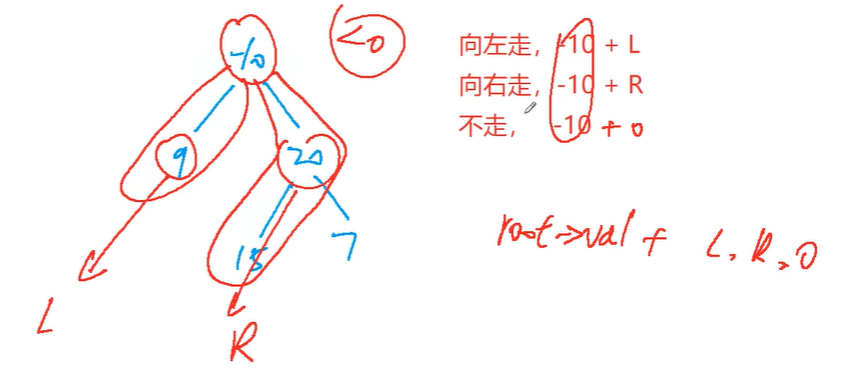 -10
<0
9
20
15
7
L
R
向左走, -10 + L
向右走, -10 + R
不走, -10 + 0
root->val + L, R, 0